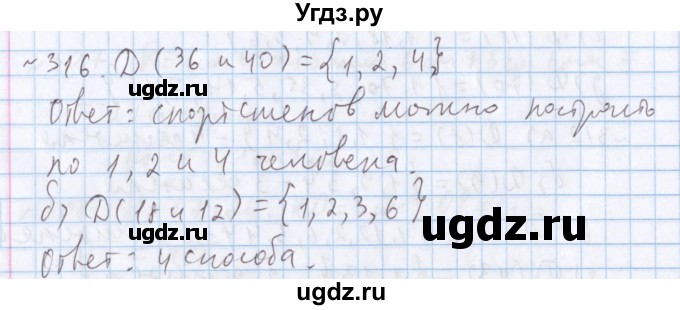 Угдз.ру
~316. D (36 и 40) = {1, 2, 4}
ugdz.ru
Ответ: спортсменов можно построить
по 1, 2 и 4 человека.
б) D(18 и 12) = {1, 2, 3, 6}
ugdz.ru
ugdz.ru
Ответ: 4 способа.
ugdz.ru
ugdz.ru